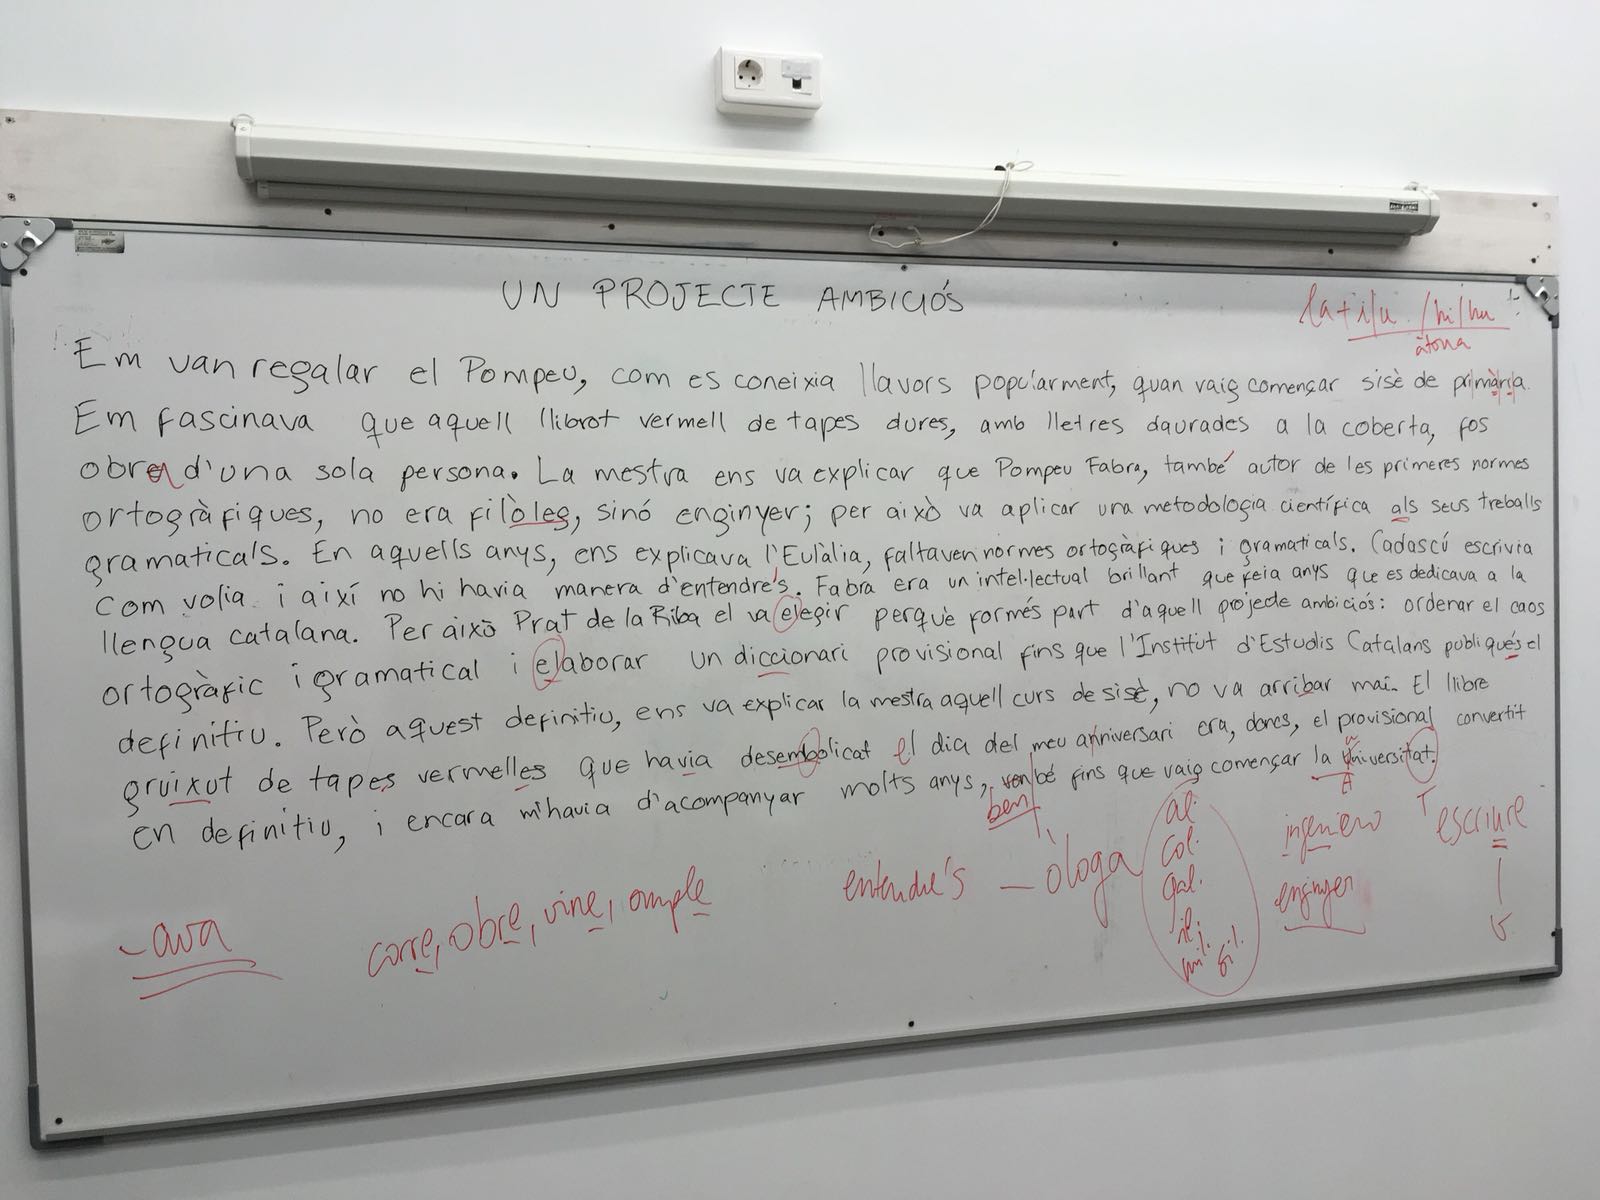 UN PROJECTE AMBICIÓS
la + i/u /hi/hu
àtona
Em van regalar el Pompeu, com es coneixia llavors popularment, quan vaig començar sisè de primària.
Em fascinava que aquell llibrot vermell de tapes dures, amb lletres daurades a la coberta, fos
obra d'una sola persona. La mestra ens va explicar que Pompeu Fabra, també autor de les primeres normes
ortogràfiques, no era filòleg, sinó enginyer; per això va aplicar una metodologia científica als seus treballs
gramaticals. En aquells anys, ens explicava l'Eulàlia, faltaven normes ortogràfiques i gramaticals. Cadascú escrivia
com volia i així no hi havia manera d'entendre's. Fabra era un intel·lectual brillant que feia anys que es dedicava a la
llengua catalana. Per això Prat de la Riba el va elegir perquè formés part d'aquell projecte ambiciós: ordenar el caos
ortogràfic i gramatical i elaborar un diccionari provisional fins que l'Institut d'Estudis Catalans publiqués el
definitiu. Però aquest definitiu, ens va explicar la mestra aquell curs de sisè, no va arribar mai. El llibre
gruixut de tapes vermelles que havia desembolicat el dia del meu aniversari era, doncs, el provisional convertit
en definitiu, i encara m'havia d'acompanyar molts anys, bé fins que vaig començar la universitat.
ben
-ava
corre, obre, vine, omple
entendre's
- òloga
al·
col·
gal·
il·
mil· sil·
ingeniero
enginyer
escriure